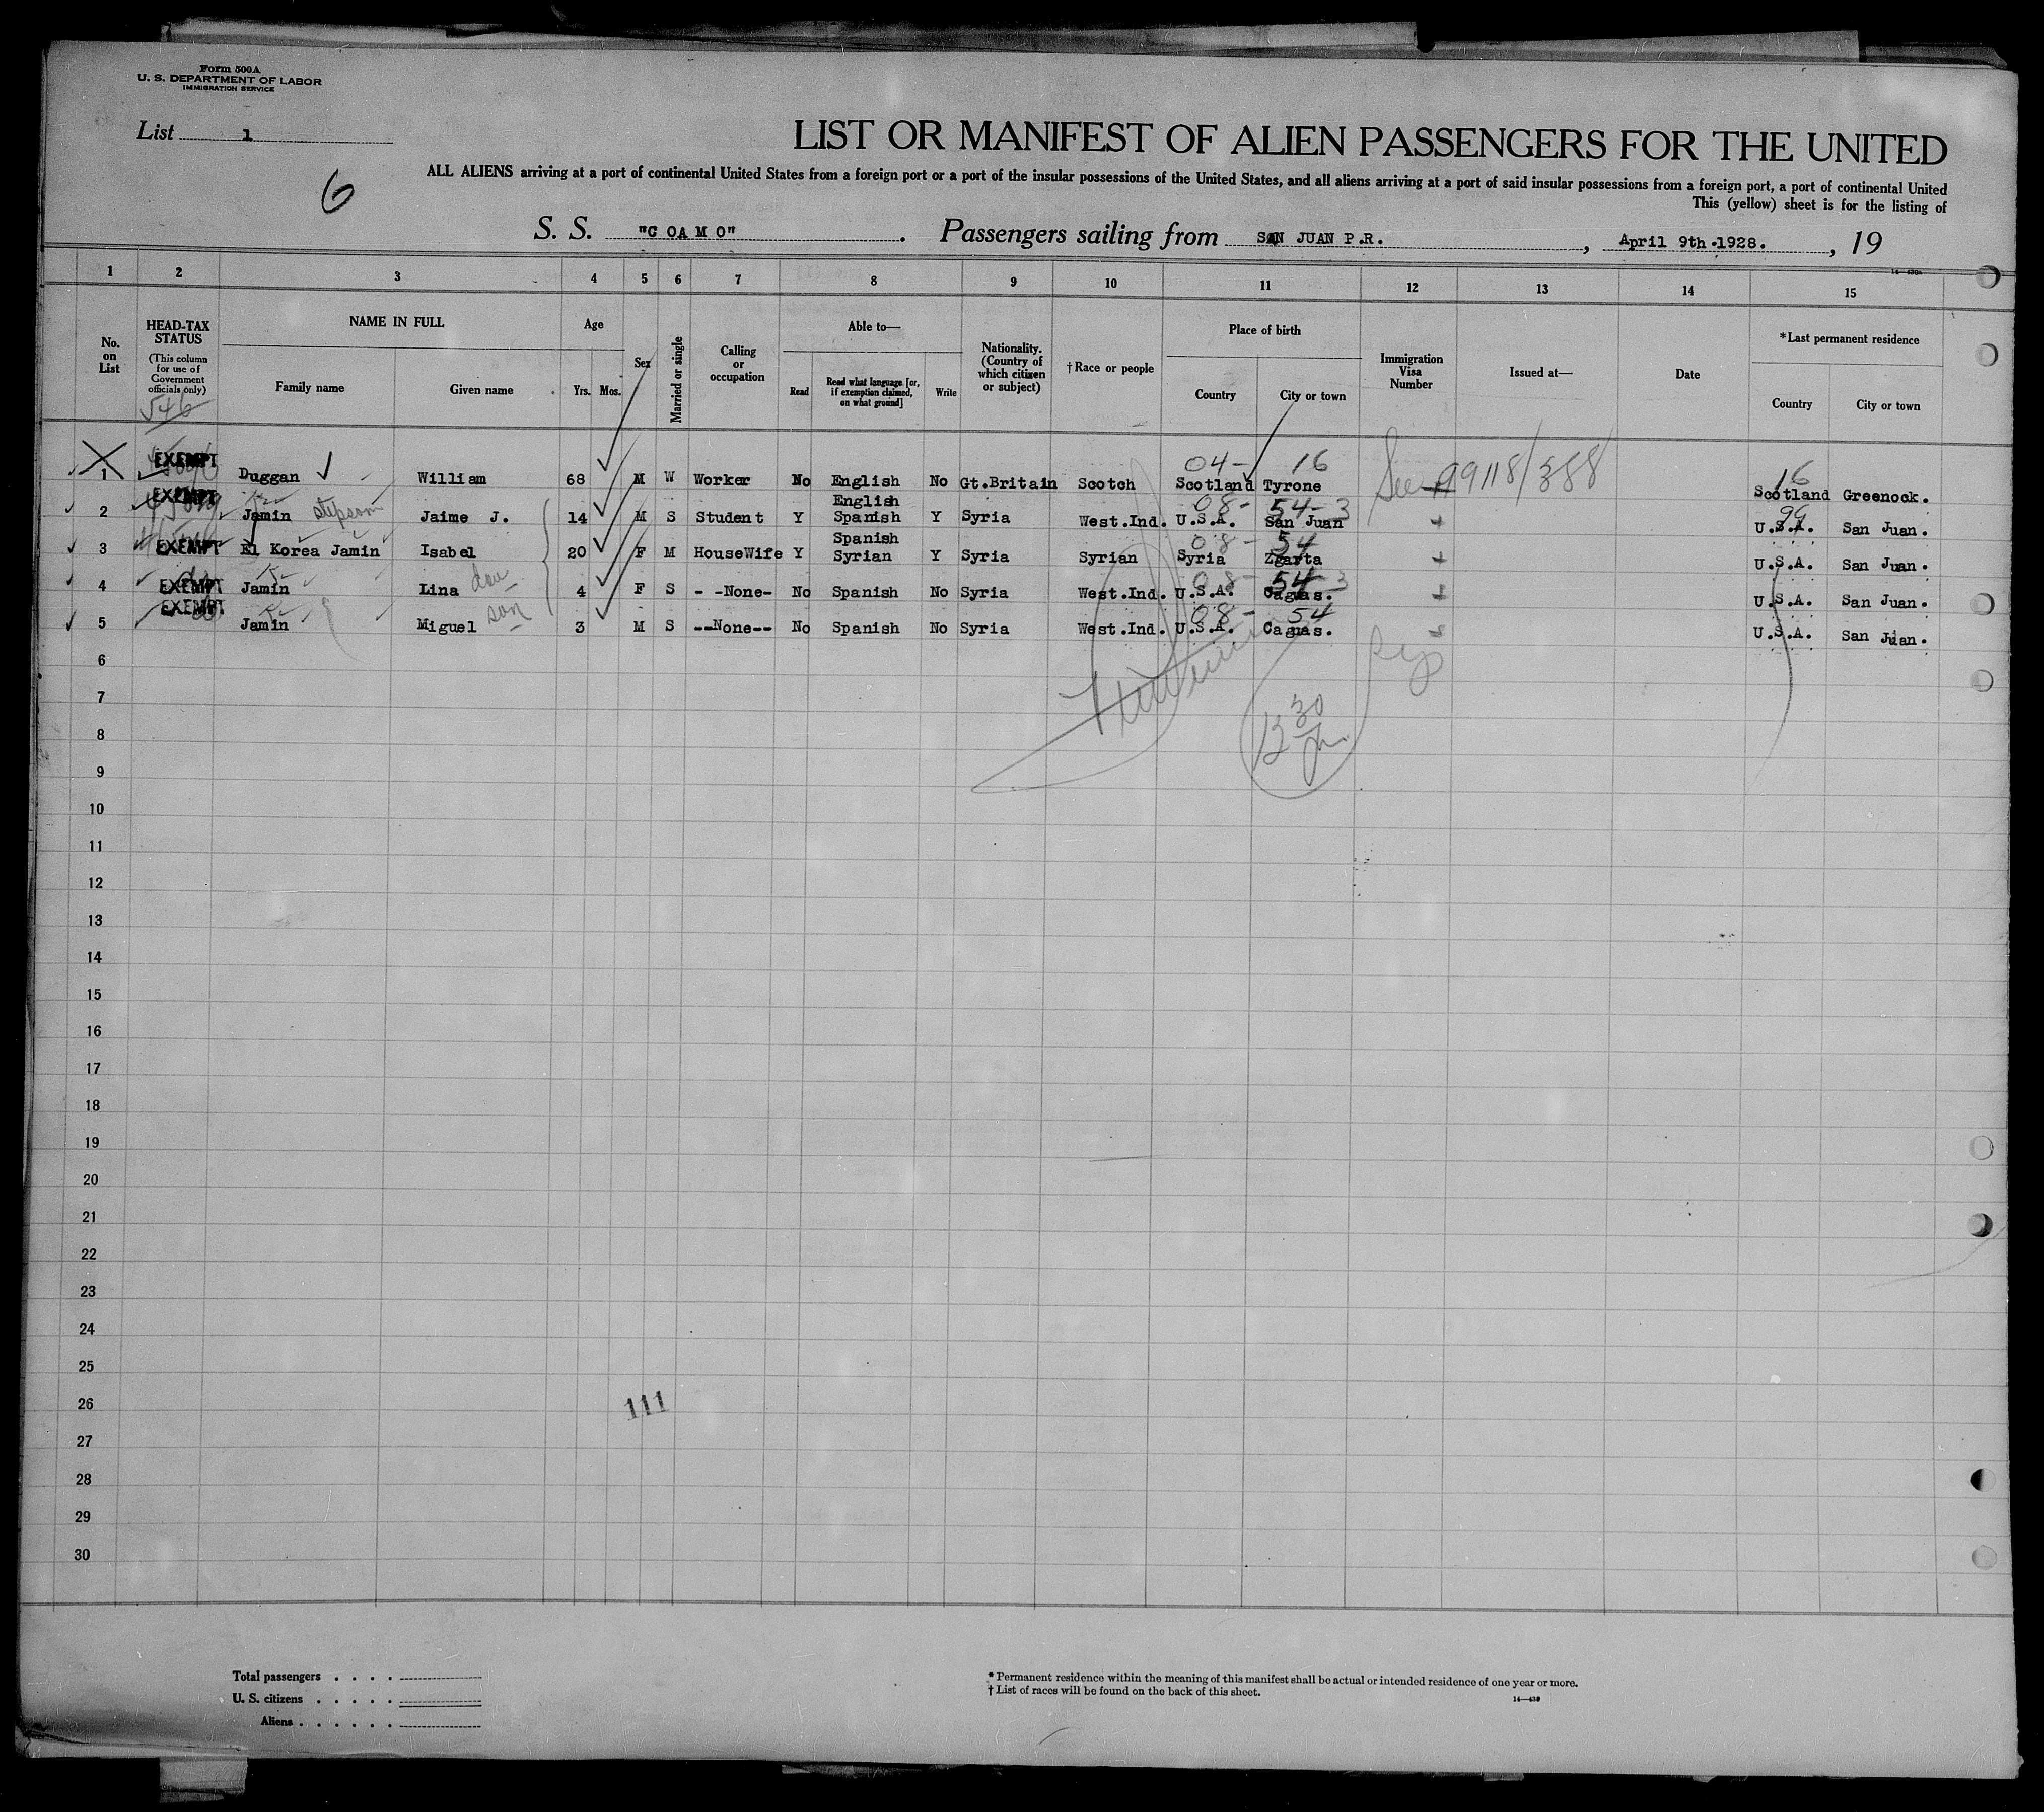 Form 500A
U. S. DEPARTMENT OF LABOR
IMMIGRATION SERVICE
List 1
6
LIST OR MANIFEST OF ALIEN PASSENGERS FOR THE UNITED
ALL ALIENS arriving at a port of continental United States from a foreign port or a port of the insular possessions of the United States, and all aliens arriving at a port of said insular possessions from a foreign port, a port of continental United
This (yellow) sheet is for the listing of
S. S. "COAMO". Passengers sailing from SAN JUAN P.R., April 9th.1928., 19
1 2 3 4 5 6 7 8 9 10 11 12 13 14 15
No. on List
HEAD-TAX STATUS
(This column for use of Government officials only)
546
NAME IN FULL
Family name Given name
Age
Yrs. Mos.
Sex
Married or single
Calling or occupation
Able to—
Read
Read what language [or, if exemption claimed, on what ground]
Write
Nationality. (Country of which citizen or subject)
†Race or people
Place of birth
Country City or town
Immigration Visa Number
Issued at—
Date
*Last permanent residence
Country City or town
04- 16 See 99118/388 16
1 EXEMPT Duggan William 68 M W Worker No English No Gt.Britain Scotch Scotland Tyrone Scotland Greenock.
08- 54-3 99
2 EXEMPT Jamin stepson Jaime J. 14 M S Student Y English Spanish Y Syria West.Ind. U.S.A. San Juan U.S.A. San Juan.
08- 54
3 EXEMPT El Korea Jamin Isabel 20 F M HouseWife Y Spanish Syrian Y Syria Syrian Syria Zgarta U.S.A. San Juan.
08- 54-3
4 EXEMPT Jamin Lina dau 4 F S - -None- No Spanish No Syria West.Ind. U.S.A. Cagnas. U.S.A. San Juan.
08- 54
5 EXEMPT Jamin Miguel son 3 M S --None-- No Spanish No Syria West.Ind. U.S.A. Cagnas. U.S.A. San Juan.
6
7
12 30
8
9
10
11
12
13
14
15
16
17
18
19
20
21
22
23
24
25
26
111
27
28
29
30
Total passengers . . . .
U. S. citizens . . . . .
Aliens . . . . . .
* Permanent residence within the meaning of this manifest shall be actual or intended residence of one year or more.
† List of races will be found on the back of this sheet.
14—430